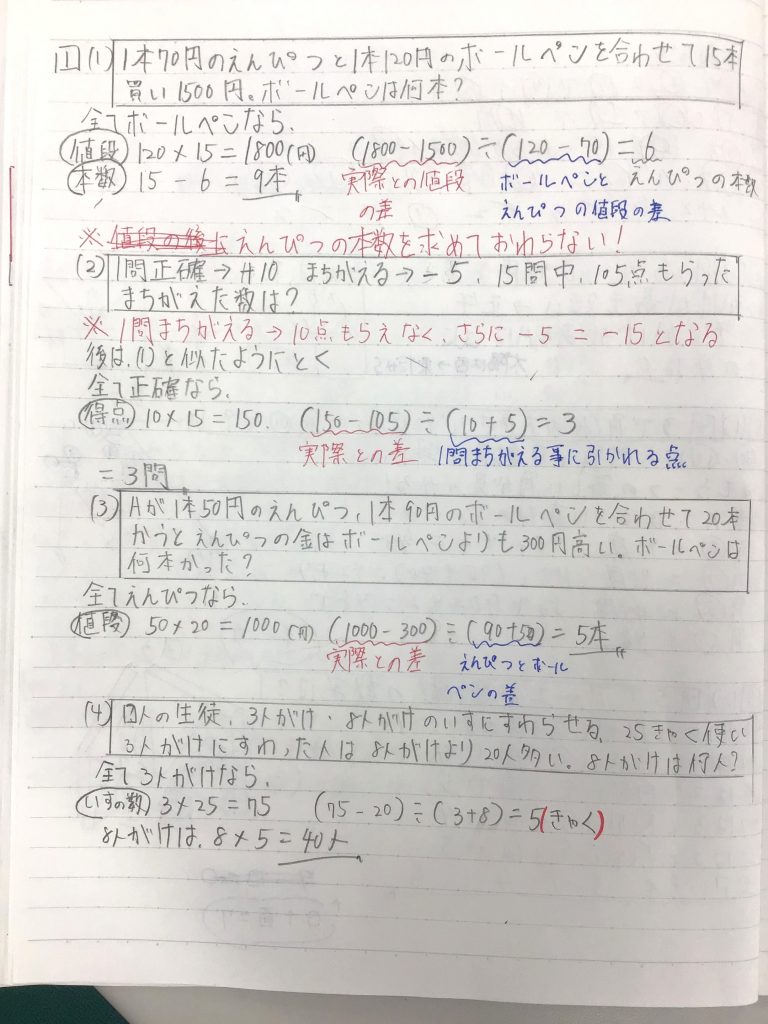 1 (1) 1本70円のえんぴつと1本120円のボールペンを合わせて15本
買い1500円。ボールペンは何本?
全てボールペンなら、
値段 120×15=1800(円) (1800-1500)÷(120-70)=6
本数 15-6=9本 実際との値段の差 ボールペンとえんぴつの値段の差 えんぴつの本数
※ 値段の後に えんぴつの本数を求めておわらない!
(2) 1問正確→+10 まちがえる→-5、15問中、105点もらった
まちがえた数は?
※ 1問まちがえる→10点もらえなく、さらに-5 = -15となる
後は、(1)と似たようにとく
全て正確なら、
得点 10×15=150. (150-105)÷(10+5)=3
実際との差 1問まちがえる事に引かれる点
=3問
(3) Aが1本50円のえんぴつ、1本90円のボールペンを合わせて20本
かうとえんぴつの金はボールペンよりも300円高い。ボールペンは
何本かった?
全てえんぴつなら、
値段 50×20=1000(円) (1000-300)÷(90+50)=5本
実際との差 えんぴつとボール
ペンの差
(4) 人の生徒、3人がけ・8人がけのいすにすわらせる、25きゃく使い
3人がけにすわった人は8人がけより20人多い。8人がけは何人?
全て3人がけなら、
いすの数 3×25=75 (75-20)÷(3+8)=5(きゃく)
8人がけは、8×5=40人